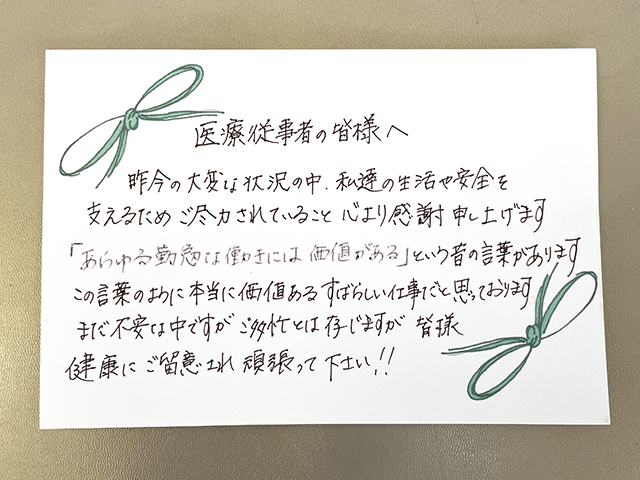 医療従事者の皆様へ
昨今の大変な状況の中、私達の生活や安全を
支えるため ご尽力されていること 心より感謝申し上げます
「あらゆる勤勉な働きには 価値がある」という昔の言葉があります
この言葉のように本当に価値あるすばらしい仕事だと思っております
まだ不安な中ですが ご多忙とは存じますが 皆様
健康にご留意され 頑張って下さい!!